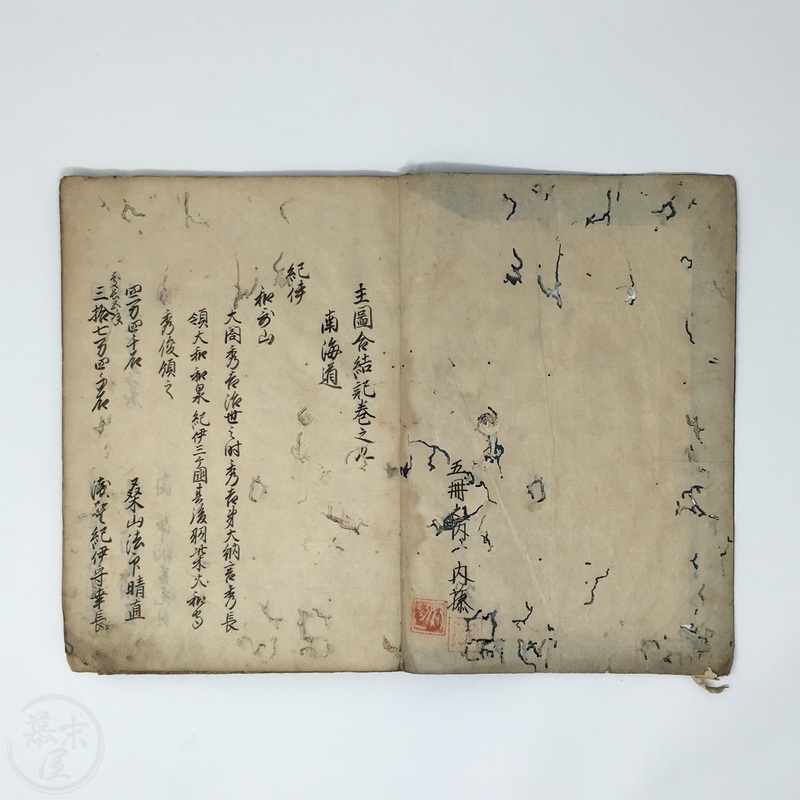 五冊之内 内藤
主圖合結記巻之
南海道
紀伊
和歌山
大閤秀吉治世之時秀吉弟大納言秀長
領大和和泉紀伊三ヶ國其後羽柴大和守
秀俊領之
四万四千石 桑山法印晴直
慶長五年
三拾七万四千石 浅野紀伊守幸長
幕末屋